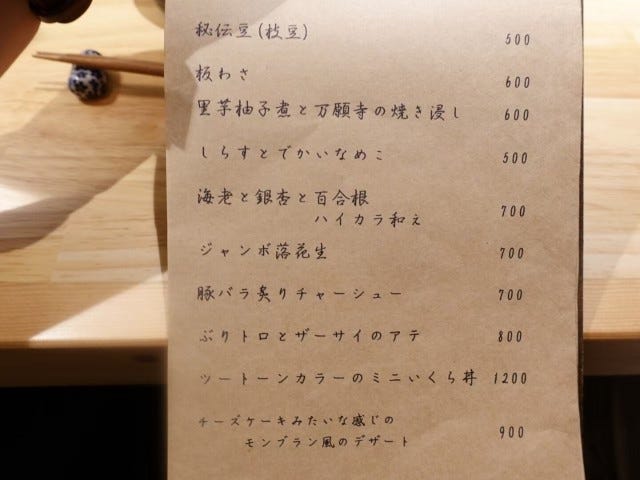 秘伝豆(枝豆) 500
板わさ 600
里芋柚子煮と万願寺の焼き浸し 600
しらすとでかいなめこ 500
海老と銀杏と百合根
ハイカラ和え 700
ジャンボ落花生 700
豚バラ炙りチャーシュー 700
ぶりトロとザーサイのアテ 800
ツートーンカラーのミニいくら丼 1200
チーズケーキみたいな感じの
モンブラン風のデザート 900